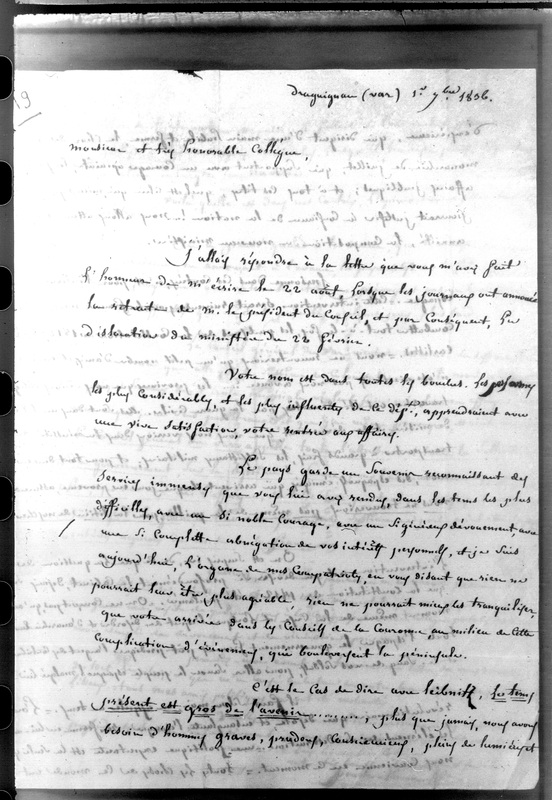 19
Draguignan (var) 1er 7bre 1836.
monsieur et très honorable Collègue,
J'allois répondre à la lettre que vous m'avez fait
l'honneur de m'écrire le 22 août, lorsque les journaux ont annoncé
la retraite de M. le président du Conseil, et par Conséquent, la
dislocation du ministère du 22 février.
Votre nom est dans toutes les bouches. les personnes
les plus Considérables, et les plus influentes de le dépt., apprendraient avec
une vive Satisfaction, votre rentrée aux affaires.
Le pays garde un Souvenir reconnaissant des
Services immenses que vous lui avez rendus, dans les tems les plus
difficiles, avec un Si noble Courage, avec un Si généreux dévouement, avec
une Si Complette abnégation de vos intérêts personnels, et je Suis
aujourd'hui, l'organe de mes Compatriotes, en vous disant que rien ne
pourrait leur être plus agréable, rien ne pourrait mieux les tranquiliser,
que votre arrivée dans les Conseils de la Couronne au milieu de cette
Complication d'évènemens, que bouleversent la péninsule.
C'est le Cas de dire avec leibnitz, le tems
présent est gros de l'avenir ........., plus que jamais, nous avons
besoin d'hommes graves, prudens, Consciencieux, pleins de lumières et